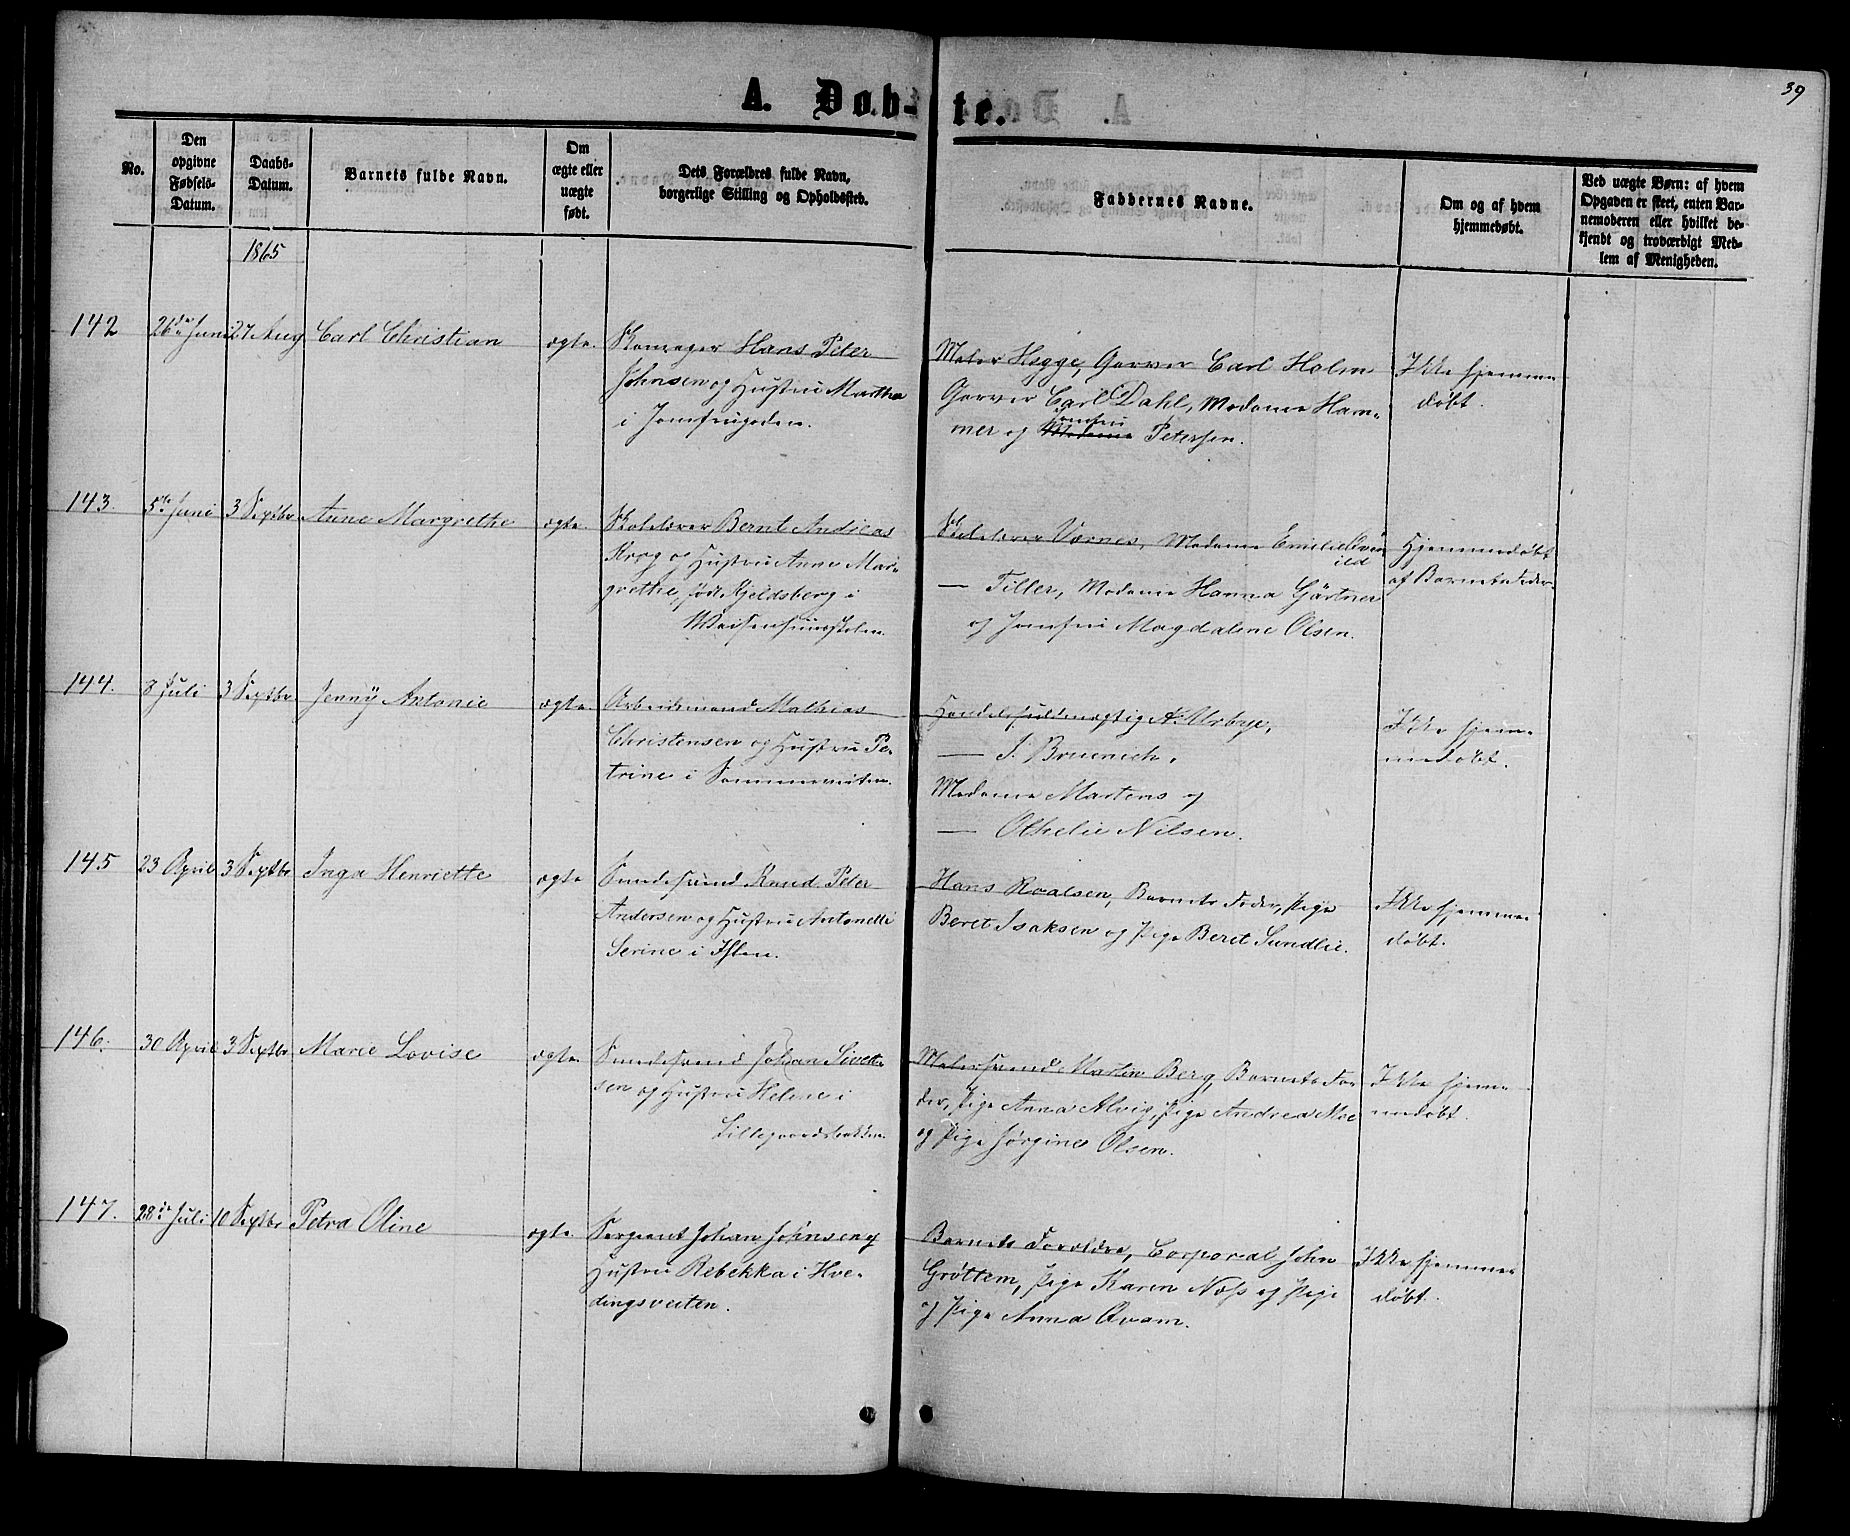 39
A. Døb-te.
No.
Den
opgivne
Fødsels-
Datum.
Daabs-
Datum.
Barnets fulde Navn.
Om
ægte eller
uægte
født.
Dets Forældres fulde Navn,
borgerlige Stilling og Opholdssted.
Faddernes Navne.
Om og af hvem
hjemmedøbt.
Ved uægte Børn: af hvem
Opgaven er skeet, enten Bar-
nemoderen eller hvilket be-
kjendt og troværdigt Med-
lem af Menigheden.
1865
142
26de Juni
27 Aug
Carl Christian
ægte.
Skomager Hans Peter
Johnsen og Hustru Martha
i Jomfrugaden.
Maler Hegge, Garver Carl Holm
Garver Carl Dahl, Madame Ham-
mer og Madame Jomfru Petersen.
Ikke hjemme
døbt.
143.
5te Juni
3 Septbr
Anne Margrethe
ægte.
Skolelærer Bernt Andreas
Krog og Hustru Anne Mar-
grethe, født Kjeldsberg i
Waisenhuusskolen.
Skolelærer Værnes, Madame Emilie
— Tiller, Madame Hanna Gärtner
og Jomfru Magdalene Olsen.
Hjemmedøbt
af Barnets Fader.
144.
8 Juli
3 Septbr
Jenny Antonie
ægte.
Arbeidsmand Mathias
Christensen og Hustru Pe-
trine i Sommerveiten.
Handelsfuldmægtig A. Urbye,
— J. Bruenich,
Madame Martens og
— Othelie Nilsen.
Ikke hjem-
medøbt.
145
23 April
3 Septbr
Inga Henriette
ægte
Smedesvend Knud Peter
Andersen og Hustru Antonette
Serine i Ihlen.
Hans Roalsen, Barnets Fader, Pige
Beret Isaksen og Pige Beret Sundlie.
Ikke hjemme
døbt.
146.
30 April
3 Septbr
Marie Lovise
ægte.
Smedesvend Johan Sivert-
sen og Hustru Helene i
Lillegaardsbakken.
Malersvend Martin Berg, Barnets Fa-
der, Pige Anna Alvig, Pige Andrea Moe
og Pige Jørgine Olsen.
Ikke hjem-
medøbt.
147.
28de Juli
10 Septbr
Petra Oline
ægte.
Sergeant Johan Johnsen og
Hustru Rebekka i Hve-
dingsveiten.
Barnets Forældre, Corporal John
Grøttem, Pige Karen Næss og Pige
og Pige Anna Qvam.
Ikke hjemme
døbt.